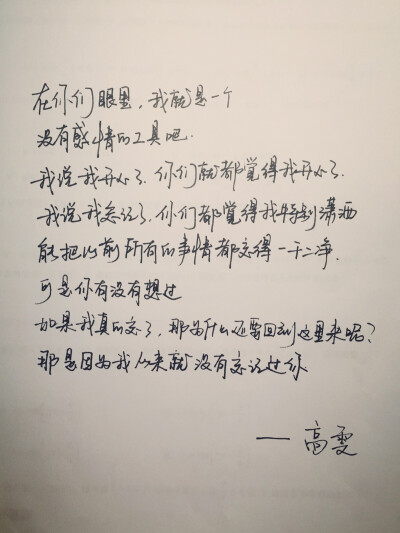 在你们眼里，我就是一个
没有感情的工具吧.
我说我开心了，你们就都觉得我开心了.
我说我忘记了，你们都觉得我特别潇洒
能把以前所有的事情都忘得一干二净.
可是你有没有想过
如果我真的忘了，那为什么还要回到这里来呢？
那是因为我从来就没有忘记过你
—— 高雯